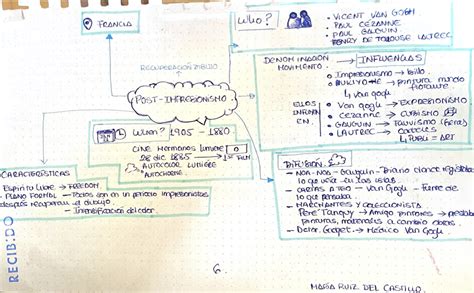 FRANCIA
WHO?
• VICENT VAN GOGH
• PAUL CEZANNE
• PAUL GAUGUIN
• HENRY DE TOULOUSE LAUTREC
RECUPERACIÓN DIBUJO
POST-IMPRESIONISMO
DENOMINACIÓN MOVIMIENTO
INFLUENCIAS
Impresionismo → brillo
→ pinturas mundo flotante
↳ Van gogh
ELLOS INFLUYEN EN
Van Gogh → EXPRESIONISMO
Cezanne → CUBISMO
GAUGUIN → FAUVISMO (fieras)
LAUTREC → CARTELES
↳ PUBLI = ART
When? 1905 - 1880
CINE Hermanos Lumière
28 dic 1895 → 1st FILM
AUTOCOLOR LUMIÈRE
AUTOCHROME
CARACTERÍSTICAS
Espíritu libre → FREEDOM
- PLANO FORMAL → Todos son en un periodo impresionistas
después recuperan el dibujo
- Intensificación del color
DIFUSIÓN
- NOA-NOA - Gauguin - Diario donde registra
lo que veía en las islas.
- CARTAS A TEO → Van Gogh - Fuente de
lo que pensaba.
- MARCHANTES Y COLECCIONISTA
Père Tanguy → Amigo pintores → prestaba
pinturas, materiales a cambio obras.
→ Médico Van Gogh
RECIBIDO
6
MARÍA RUIZ DEL CASTILLO